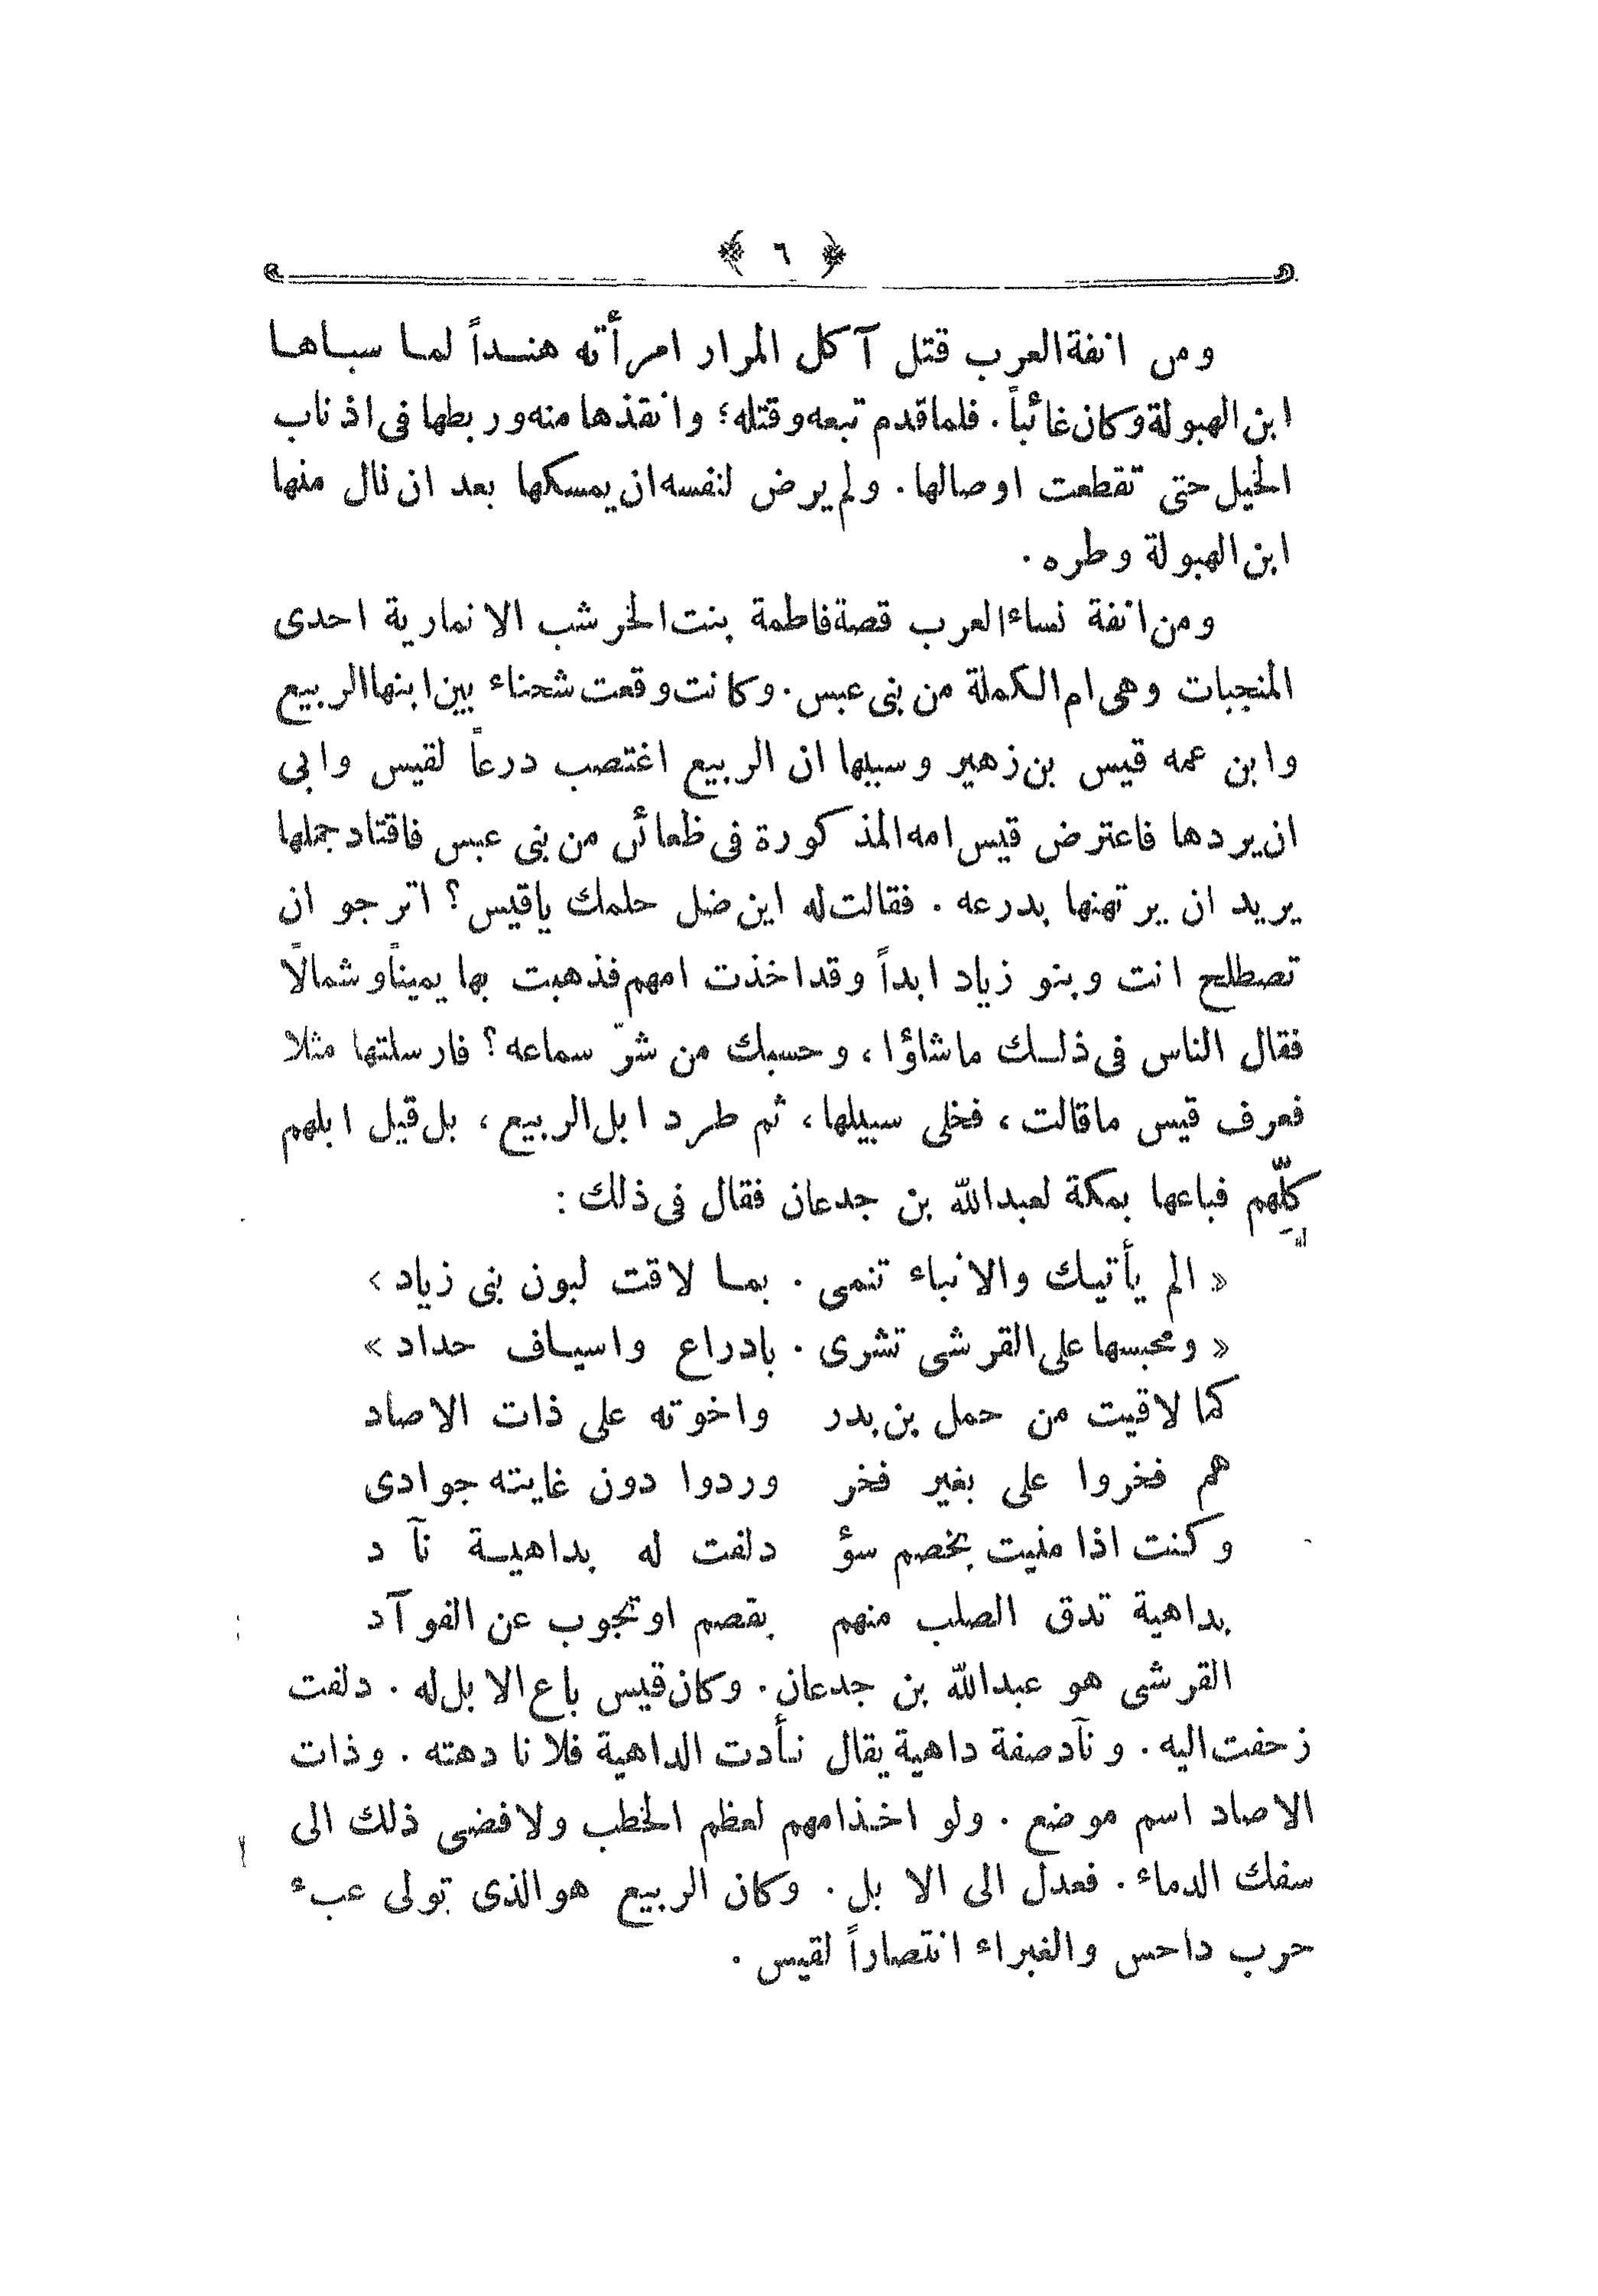 ﴿ ٦ ﴾
ومن انفة العرب قتل آكل المرار امرأته هنداً لما سباها
ابن الهبولة وكان غائباً. فلما قدم تبعه وقتله؛ وانقذها منه وربطها فى اذناب
الخيل حتى تقطعت اوصالها. ولم يرض لنفسه ان يمسكها بعد ان نال منها
ابن الهبولة وطره.
ومن انفة نساء العرب قصة فاطمة بنت الخرشب الانمارية احدى
المنجبات وهى ام الكملة من بنى عبس. وكانت وقعت شحناء بين ابنها الربيع
وابن عمه قيس بن زهير وسببها ان الربيع اغتصب درعاً لقيس وابى
ان يردها فاعترض قيس امه المذكورة فى ظعائن من بنى عبس فاقتاد جملها
يريد ان يرتهنها بدرعه. فقالت له اين ضل حلمك ياقيس؟ اترجو ان
تصطلح انت وبنو زياد ابداً وقد اخذت امهم فذهبت بها يميناً وشمالاً
فقال الناس فى ذلك ماشاؤا، وحسبك من شرّ سماعه؟ فارسلتها مثلا
فعرف قيس ماقالت، فخلى سبيلها، ثم طرد ابل الربيع، بل قيل ابلهم
كلّهم فباعها بمكة لعبدالله بن جدعان فقال فى ذلك:
« الم يأتيك والانباء تنمى . بما لاقت لبون بنى زياد »
« ومحبسها على القرشى تشرى . بادراع واسياف حداد »
كما لاقيت من حمل بن بدر واخوته على ذات الاصاد
هم فخروا على بغير فخر وردوا دون غايته جوادى
وكنت اذا منيت بخصم سؤ دلفت له بداهية نآد
بداهية تدق الصلب منهم بقصم او تجوب عن الفوآد
القرشى هو عبدالله بن جدعان. وكان قيس باع الابل له. دلفت
زحفت اليه. ونآد صفة داهية يقال نأدت الداهية فلانا دهته. وذات
الاصاد اسم موضع. ولو اخذ امهم لعظم الخطب ولافضى ذلك الى
سفك الدماء. فعدل الى الابل. وكان الربيع هو الذى تولى عبء
حرب داحس والغبراء انتصاراً لقيس.